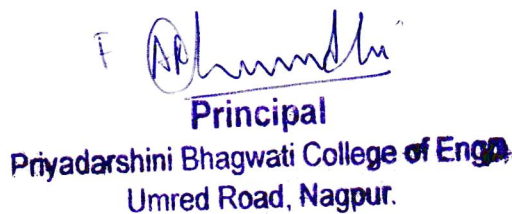 Principal
Priyadarshini Bhagwati College of Engg.
Umred Road, Nagpur.